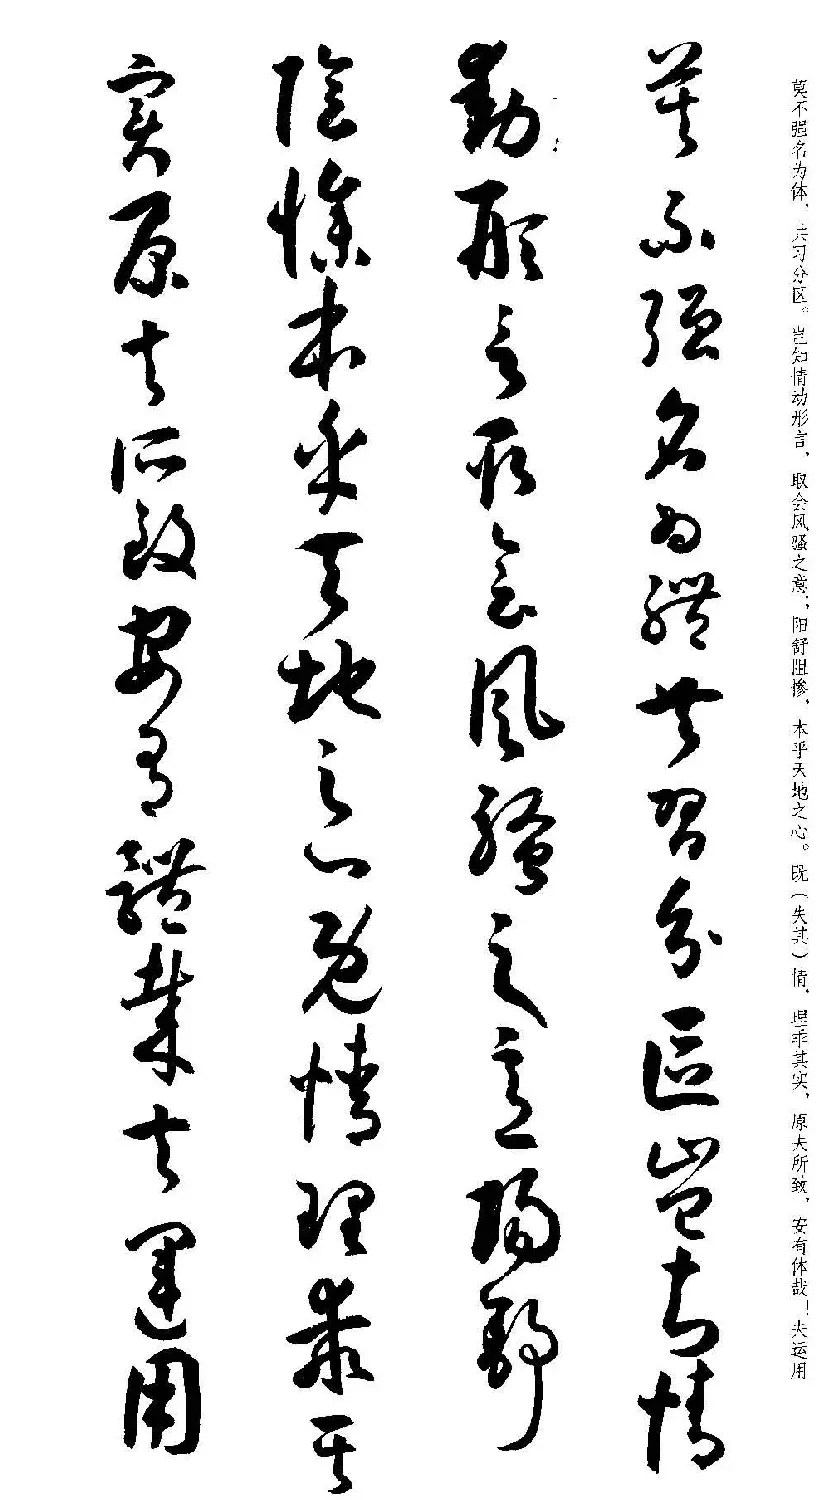 莫不强名为体，共习分区。岂知情动形言，取会风骚之意；阳舒阴惨，本乎天地之心。既（失其）情，理乖其实，原夫所致，安有体哉！夫运用
莫不強名為體共習分區豈知情
動形言取會風騷之意陽舒
陰慘本乎天地之心既情理乖其
實原夫所致安有體哉夫運用